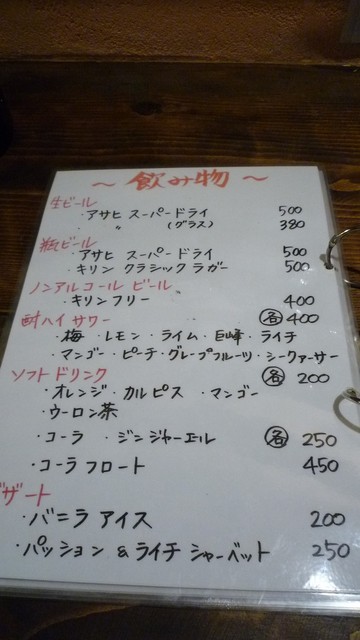 ～ 飲み物 ～
生ビール
・アサヒ スーパードライ 500
・ 〃 (グラス) 380
瓶ビール
・アサヒ スーパードライ 500
・キリン クラシックラガー 500
ノンアルコール ビール
・キリンフリー 400
酎ハイ サワー 各400
・梅 ・レモン ・ライム ・巨峰 ・ライチ
・マンゴー ・ピーチ ・グレープフルーツ ・シークァーサー
ソフトドリンク 各 200
・オレンジ ・カルピス ・マンゴー
・ウーロン茶
・コーラ ・ジンジャーエル 各 250
・コーラフロート 450
デザート
・バニラアイス 200
・パッション &ライチ シャーベット 250